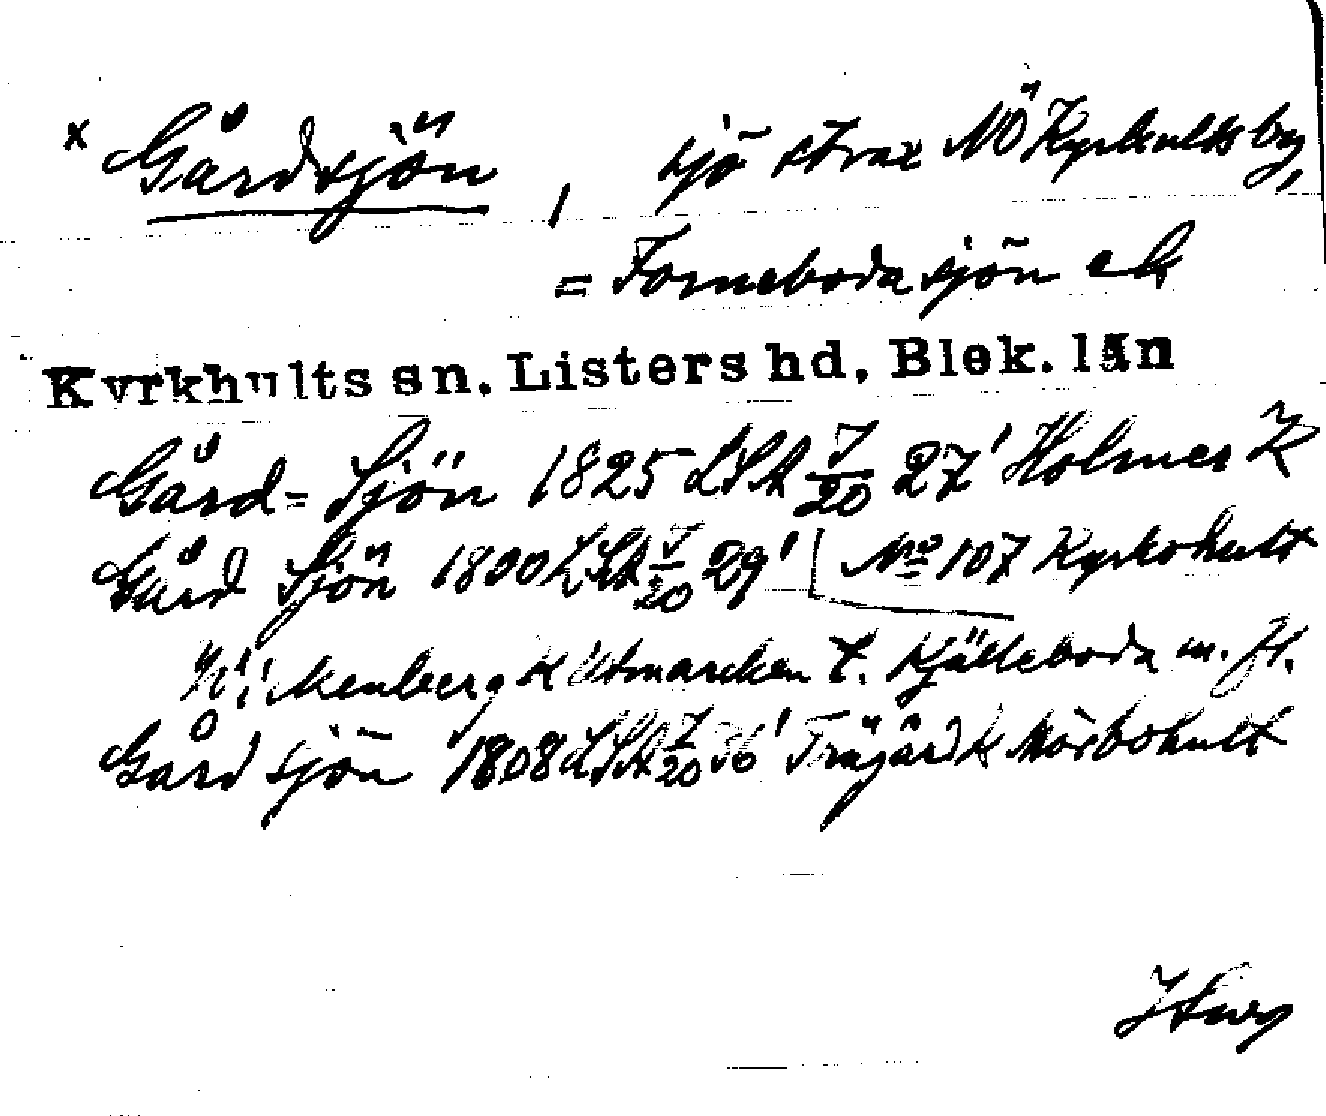 x Gårdsjön, sjö strax NÖ Kyrkults by,
= Forneboda sjön ek
Kyrkhults sn. Listers hd, Blek. län
Gård=Sjön 1825 LSA J/20 27' Holmer K
Gård Sjön 1800 LSA J/20 29' No 107 Kyrkohult
Wickenberg K Utmarcken t. Kjälleboda m. fl.
Gård sjön 1808 LSA J/20 36' Trägård k Mörbohult